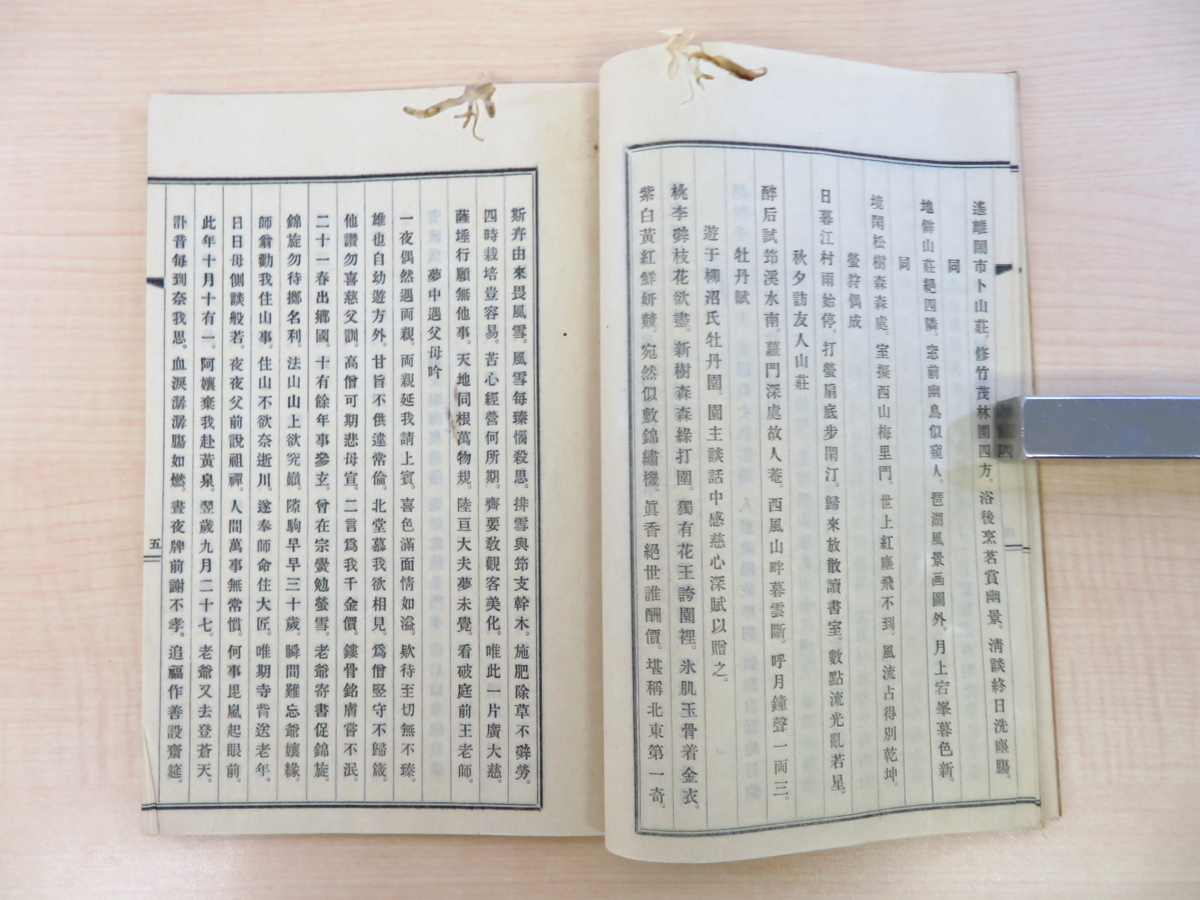 遙離閙市卜山莊。修竹茂林圍四方。浴後烹茗賞幽景。淸談終日洗塵膓。
同
地僻山莊絕四隣。窓前幽鳥似窺人。琶湖風景画圖外。月上宕峯暮色新。
同
境閑松樹森森處。室擬西山梅里門。世上紅塵飛不到。風流占得別乾坤。
螢狩偶成
日暮江村雨始停。打螢扇底步閑汀。歸來放散讀書室。數點流光亂若星。
秋夕訪友人山莊
醉后試筇溪水南。蓽門深處故人菴。西風山畔暮雲斷。呼月鐘聲一両三。
牡丹賦
遊于柳沼氏牡丹園。園主談話中感慈心深賦以贈之。
桃李辭枝花欲盡。新樹森森綠打圍。獨有花王誇園裡。氷肌玉骨着金衣。
紫白黃紅鮮妍競。宛然似敷錦繡機。眞香絕世誰酬價。堪稱北東第一奇。
斯卉由來畏風雪。風雪每臻惱殺思。排雪與筇支幹木。施肥除草不辭勞。
四時栽培豈容易。苦心經營何所期。齊要敎觀客美化。唯此一片廣大慈。
薩埵行願無他事。天地同根萬物規。陸亘大夫夢未覺。看破庭前王老師。
夢中遇父母吟
一夜偶然遇両親。両親延我請上賓。喜色滿面情如溢。欵待至切無不臻。
雄也自幼遊方外。甘旨不供違常倫。北堂慕我欲相見。爲僧堅守不歸箴。
他讚勿喜慈父訓。高僧可期悲母宣。二言爲我千金價。鏤骨銘膚嘗不泯。
二十一春出鄕國。十有餘年事參玄。曾在宗黌勉螢雪。老爺寄書促錦旋。
錦旋勿待擲名利。法山山上欲究巓。隙駒早早三十歲。瞬間難忘爺孃緣。
師翁勸我住山事。住山不欲奈逝川。遂奉師命住大匠。唯期寺背送老年。
日日母側談般若。夜夜父前說祖禪。人間萬事無常慣。何事毘嵐起眼前。
此年十月十有一。阿孃棄我赴黃泉。翌歲九月二十七。老爺又去登蒼天。
訃音每到奈我思。血淚潺潺膓如燃。晝夜牌前謝不孝。追福作善設齋筵。
五